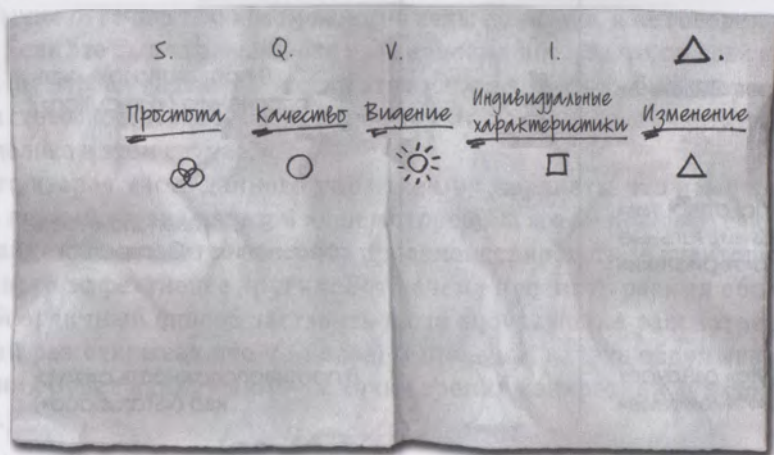 S. Q. V. I. Δ.
Простота Качество Видение Индивидуальные характеристики Изменение